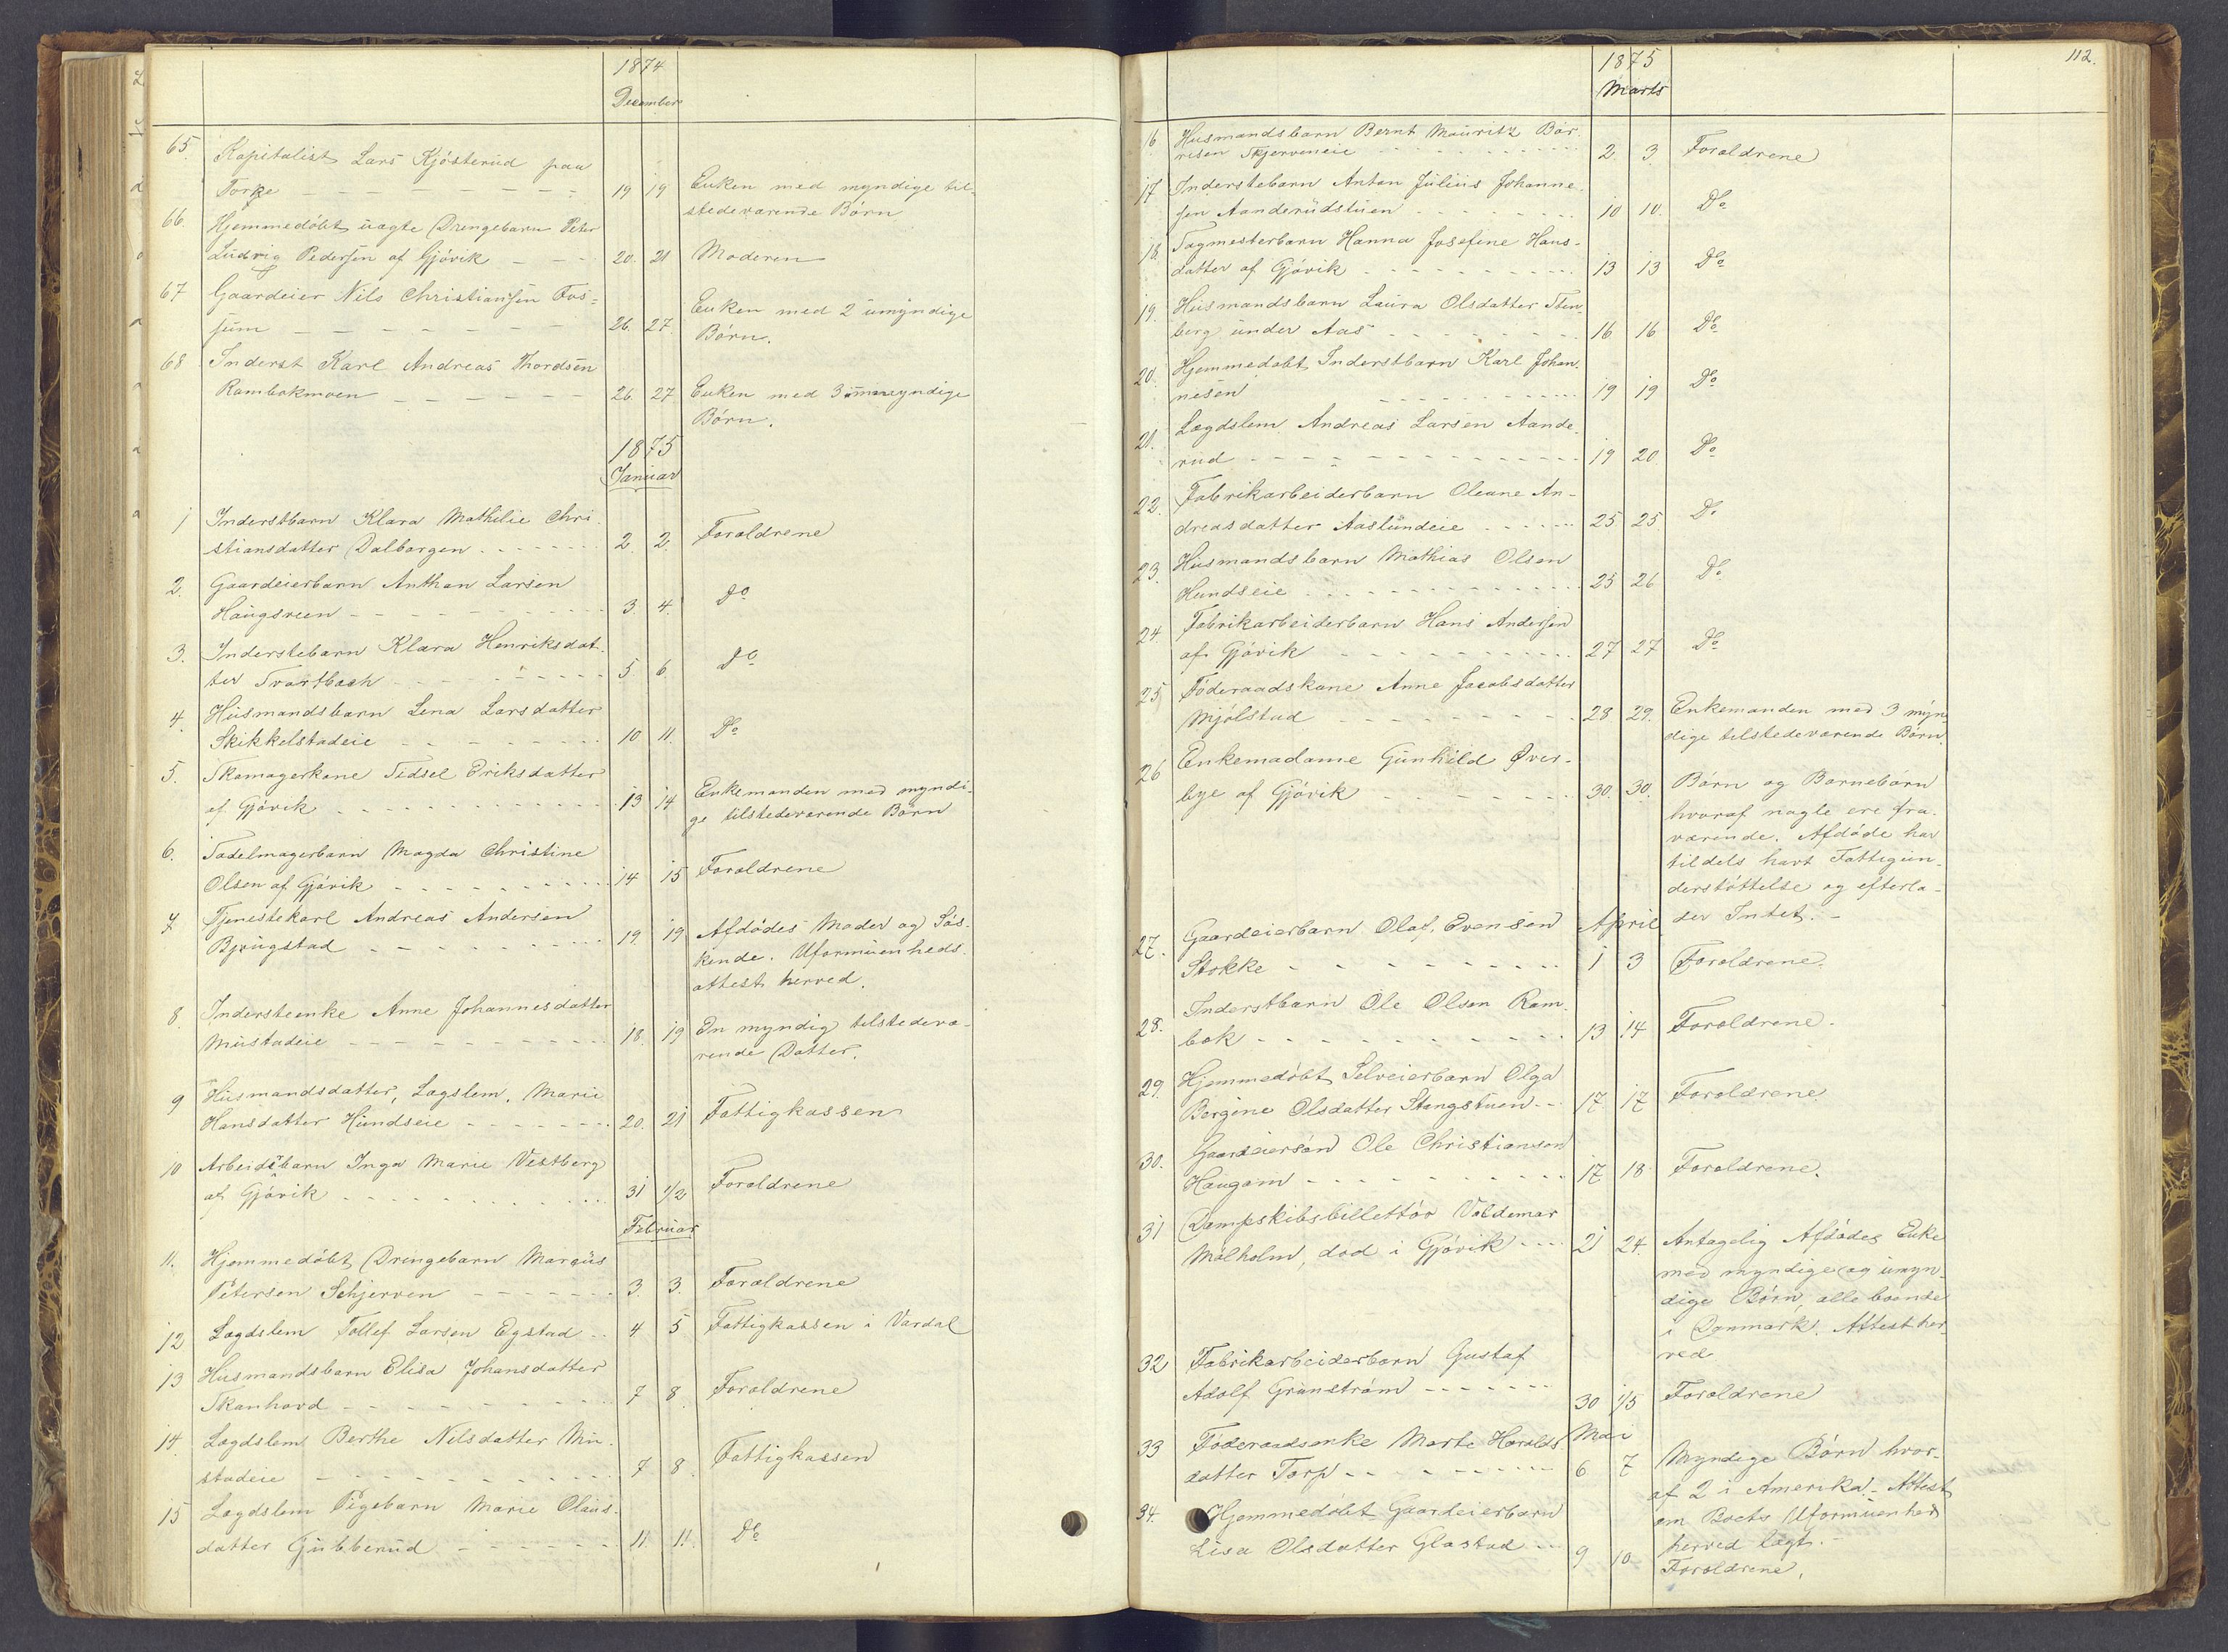 1874
December
65. Kapitalist Lars Kjösterud paa
Torke 19 19 Enken med myndige til-
stedeværende Börn
66. Hjemmedöbt uægte Drengebarn Peter
Ludvig Pedersen af Gjövik 20. 21 Moderen
67 Gaardeier Nils Christiansen Fos-
sum 26. 27. Enken med 2 umyndige
Börn.
68 Inderst Karl Andreas Thordsen
Rambekmoen 26. 27 Enken med 3 umyndige
Börn.
1875
Januar
1 Inderstbarn Klara Mathilie Chri-
stiansdatter Dalborgen 2. 2. Forældrene
2. Gaardeierbarn Anthon Larsen
Haugsveen 3. 4. Do
3. Inderstebarn Klara Henriksdat-
ter Svartbæk 5 6. Do
4. Husmandsbarn Lena Larsdatter
Skikkelstadeie 10 11. Do
5. Skomagerkone Sidsel Eriksdatter
af Gjövik 13 14 Enkemanden med myndi-
ge tilstedeværende Börn
6. Sadelmagerbarn Magda Christine
Olsen af Gjövik 14 15 Forældrene
7 Tjenestekarl Andreas Andersen
Bjrugstad 19 19 Afdödes Moder og Sös-
kende. Uformuenheds-
attest herved.
8.Indersteenke Anne Johannesdatter
Mustadeie 18. 19 En myndig tilstedevæ-
rende Datter.
9 Husmandsdatter, Lægslem, Marie
Hansdatter Hundseie 20. 21 Fattigkassen
10 Arbeidsbarn Inga Marie Vestberg
af Gjövik 31 1/2 Forældrene
Februar
11. Hjemmedöbt Drengebarn Marcus
Petersen Schjerven 3. 3. Forældrene
12 Lægdslem Tollef Larsen Egstad 4 5 Fattigkassen i Vardal
13 Husmandsbarn Elisa Johansdatter
Skanhovd 7 8 Forældrene
14. Lægdslem Berthe Nilsdatter Mu-
stadeie 7 8. Fattigkassen
15 Lægdslem Pigebarn Marie Olaus-
datter Gubberud 11 11. Do
112.
1875
Marts
16 Husmandsbarn Bernt Mauritz Bör-
resen Skjerveneie 2. 3. Forældrene
17 Inderstebarn Anton Julius Johanne-
sen Aanderudstuen 10 10. Do
18. Tagmesterbarn Hanna Josefine Hans-
datter af Gjövik 13 13 Do
19. Husmandsbarn Laura Olsdatter Sten-
berg under Aas 16 16 Do
20. Hjemmedöbt Inderstbarn Karl Johan-
nesen 19 19 Do
21. Lægdslem Andreas Larsen Aande-
rud 19 20 Do
22. Fabrikarbeiderbarn Oleane An-
dreasdatter Aaslundeie 25 25 Do
23. Husmandsbarn Mathias Olsen
Hundseie 25 26 Do
24. Fabrikarbeiderbarn Hans Andersen
af Gjövik 27 27 Do
25 Föderaadskone Anne Jacobsdatter
Mjölstad 28 29. Enkemanden med 3 myn-
dige tilstedeværende Börn
26 Enkemadame Gunhild Över-
bye af Gjövik 30. 30. Börn og Börnebörn
hvoraf nogle ere fra-
værende. Afdöde har
tildels havt Fattigun-
derstöttelse og efterla-
der Intet.
April
27. Gaardeierbarn Olaf Evensen
Stokke 1 3 Forældrene.
28. Inderstbarn Ole Olsen Ram-
bek 13 14 Forældrene.
29. Hjemmedöbt Selveierbarn Olga
Bergine Olsdatter Stangstuen 17 17 Forældrene
30. Gaardeiersön Ole Christiansen
Haugom 17 18 Forældrene.
31 Dampskibsbillettör Valdemar
Mölholm, död i Gjövik 21 24. Antagelig Afdödes Enke
med myndige og umyn-
dige Börn, alle boende
i Danmark. Attest her-
ved
32 Fabrikarbeiderbarn Gustaf
Adolf Grönström 30 1/5 Forældrene
Mai
33 Föderaadsenke Marte Haralds-
datter Torp 6 7 Myndige Börn hvor-
af 2 i Amerika. Attest
om Boets Uformuenhed
herved lagt.
34. Hjemmedöbt Gaardeierbarn
Lisa Olsdatter Glæstad 9 10 Forældrene.